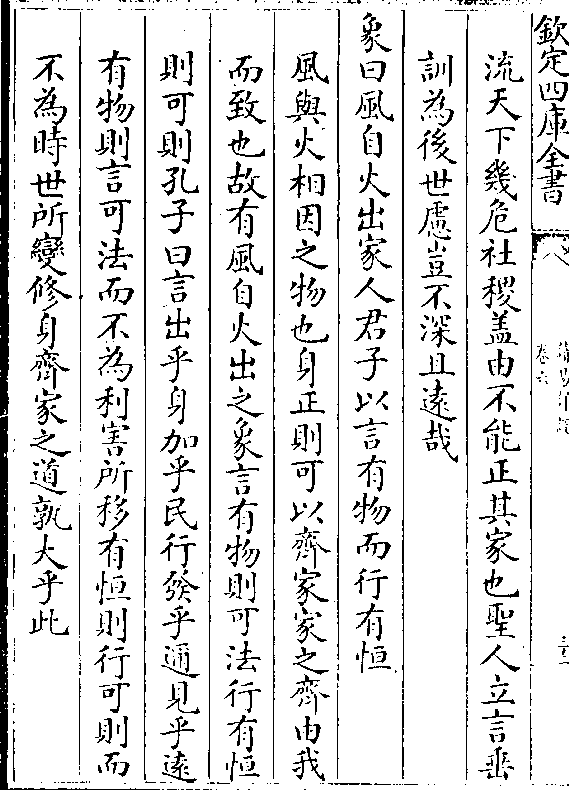 欽定四庫全書
卷六
流天下幾危社稷盖由不能正其家也聖人立言垂
訓為後世慮豈不深且逺哉
象曰風自火出家人君子以言有物而行有恒
風與火相因之物也身正則可以齊家家之齊由我
而致也故有風自火出之象言有物則可法行有恒
則可則孔子曰言出乎身加乎民行發乎邇見乎逺
有物則言可法而不為利害所移有恒則行可則而
不為時世所變修身齊家之道孰大乎此